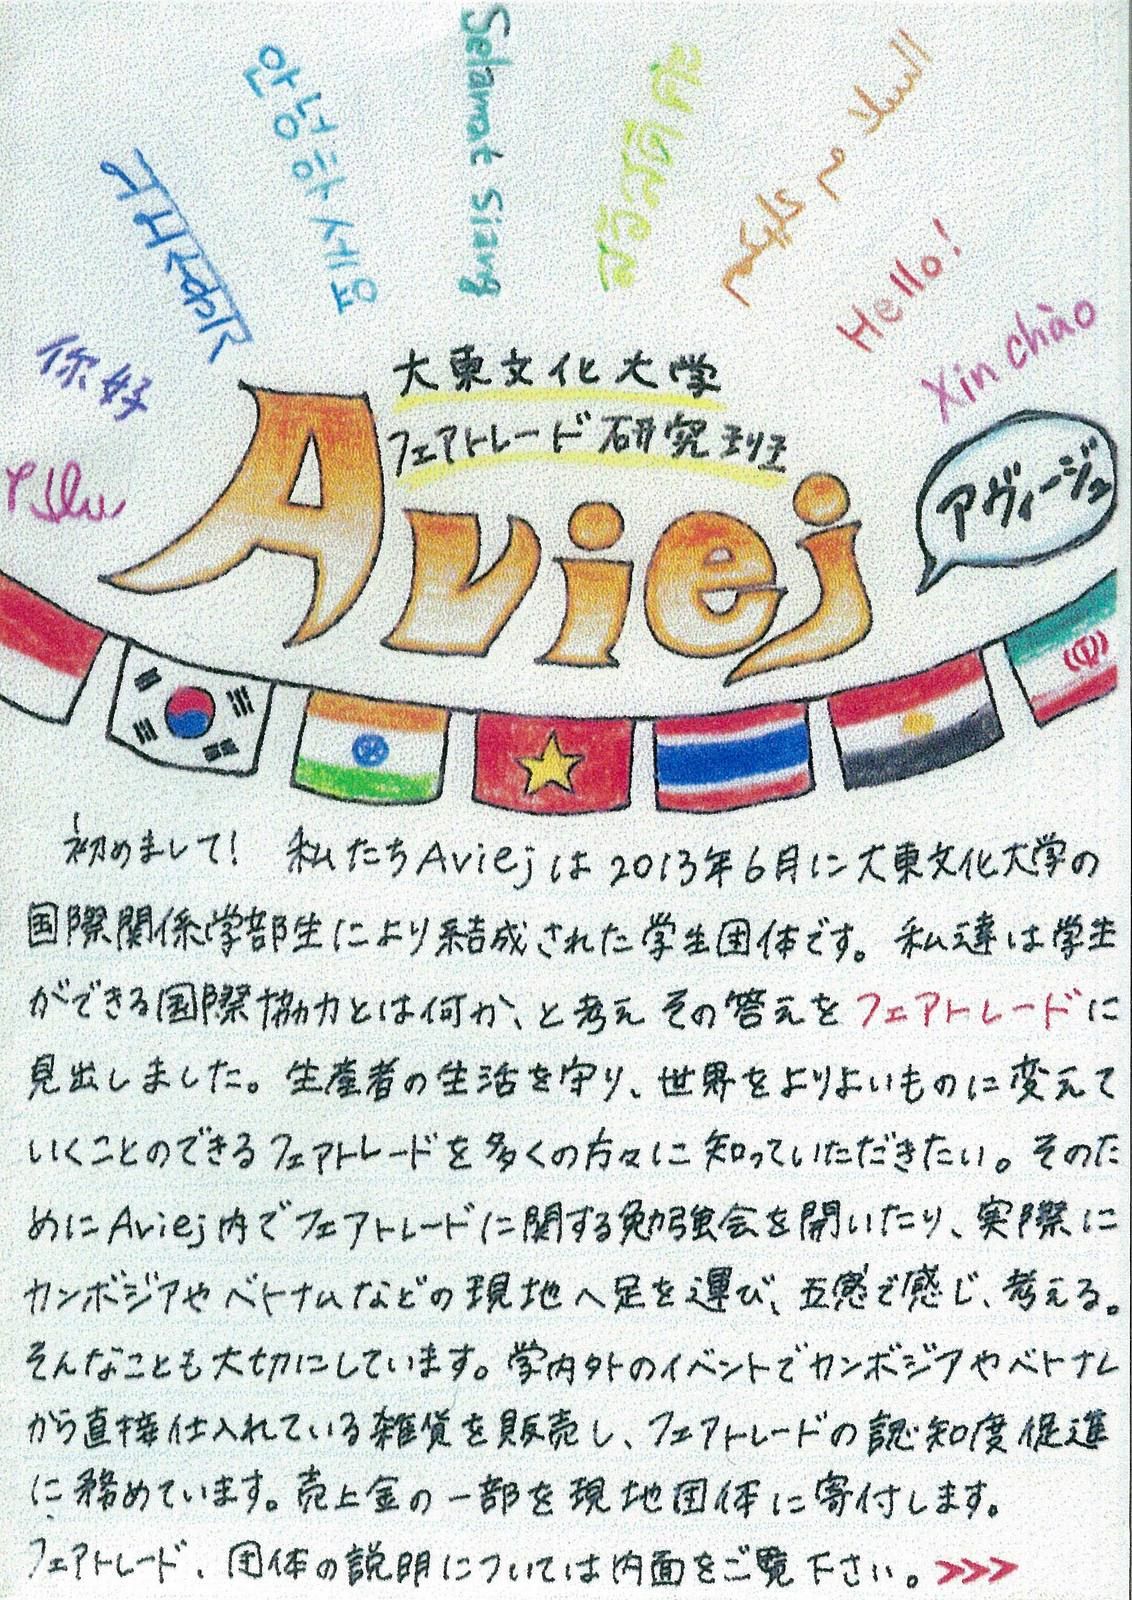 안녕하세요
Selamat Siang
السلام عليكم
नमस्कार
Hello!
Xin chào
你好
大東文化大学
フェアトレード研究班
Aviej
アヴィージュ
初めまして! 私たちAviejは2013年6月に大東文化大学の
国際関係学部生により結成された学生団体です。私達は学生
ができる国際協力とは何か、と考えその答えをフェアトレードに
見出しました。生産者の生活を守り、世界をよりよいものに変えて
いくことのできるフェアトレードを多くの方々に知っていただきたい。そのた
めにAviej内でフェアトレードに関する勉強会を開いたり、実際に
カンボジアやベトナムなどの現地へ足を運び、五感で感じ、考える。
そんなことも大切にしています。学内外のイベントでカンボジアやベトナム
から直接仕入れている雑貨を販売し、フェアトレードの認知度促進
に務めています。売上金の一部を現地団体に寄付します。
フェアトレード、団体の説明については内面をご覧下さい。>>>